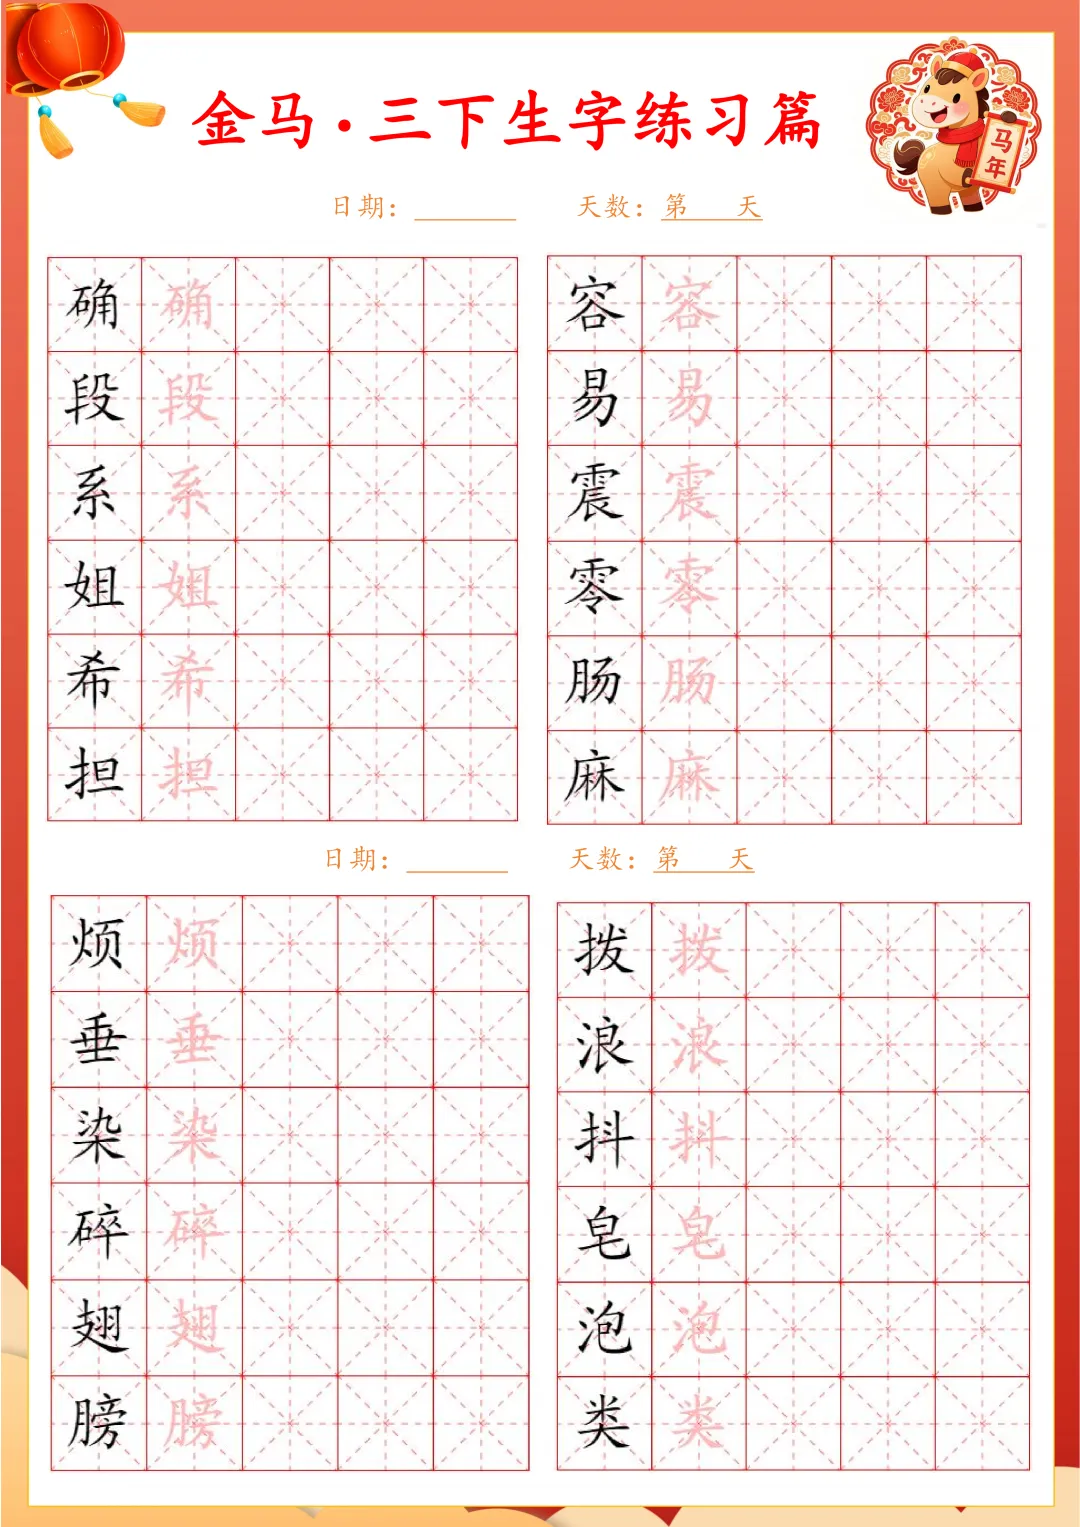 金马·三下生字练习篇
马年
日期：_______ 天数：第   天
确 确
段 段
系 系
姐 姐
希 希
担 担
容 容
易 易
震 震
零 零
肠 肠
麻 麻
日期：_______ 天数：第   天
烦 烦
垂 垂
染 染
碎 碎
翅 翅
膀 膀
拨 拨
浪 浪
抖 抖
皂 皂
泡 泡
类 类